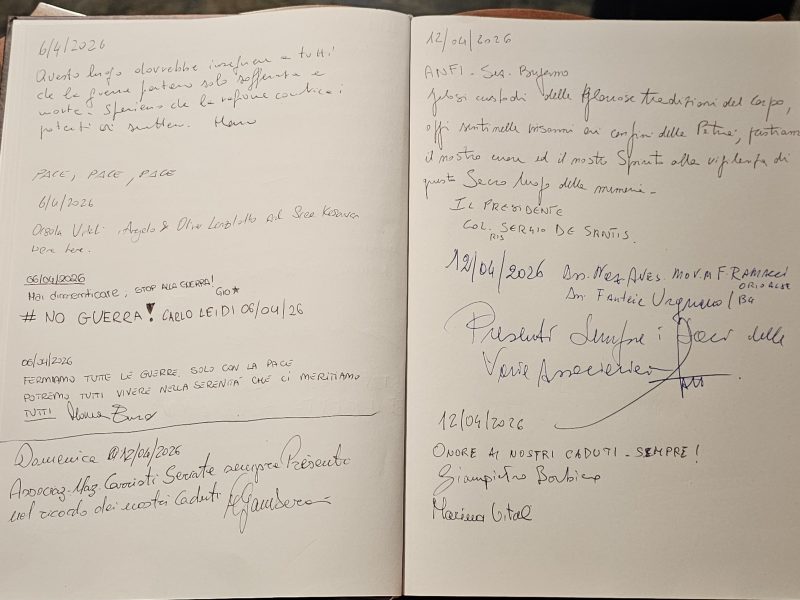 6/4/2026
Questo luogo dovrebbe insegnare a tutti
che la guerra portano solo sofferenza e
morte. Speriamo che la ragione convinca i
potenti a smettere.
PACE, PACE, PACE
6/4/2026
Orsola Vitali, Angelo &
were here.
06/04/2026
Mai dimenticare, STOP ALLA GUERRA!
Gio
# NO GUERRA! CARLO LEIDI 06/04/26
06/04/2026
FERMIAMO TUTTE LE GUERRE. SOLO CON LA PACE
POTREMO TUTTI VIVERE NELLA SERENITÀ CHE CI MERITIAMO
TUTTI
Domenica 12/04/2026
Associaz. Naz. Carristi Seriate sempre Presenti
nel ricordo dei nostri Caduti
12/04/2026
ANFI - Sez. Bergamo
Gelosi custodi delle gloriose tradizioni del Corpo,
oggi sentinelle insonni ai confini della Patria, portiamo
il nostro cuore ed il nostro Spirito alla vigilanza di
questo Sacro luogo della memoria -
IL PRESIDENTE
COL. RIS SERGIO DE SANTIS.
12/04/2026 Ass. Naz. AVES. MOVM F. RAMACCI
ORIO AL SE
Ass. Fanteria Urgnano / BG
Presenti Sempre i Soci delle
Varie Associazioni
12/04/2026
ONORE AI NOSTRI CADUTI - SEMPRE!
Giampietro
Marina Vitali